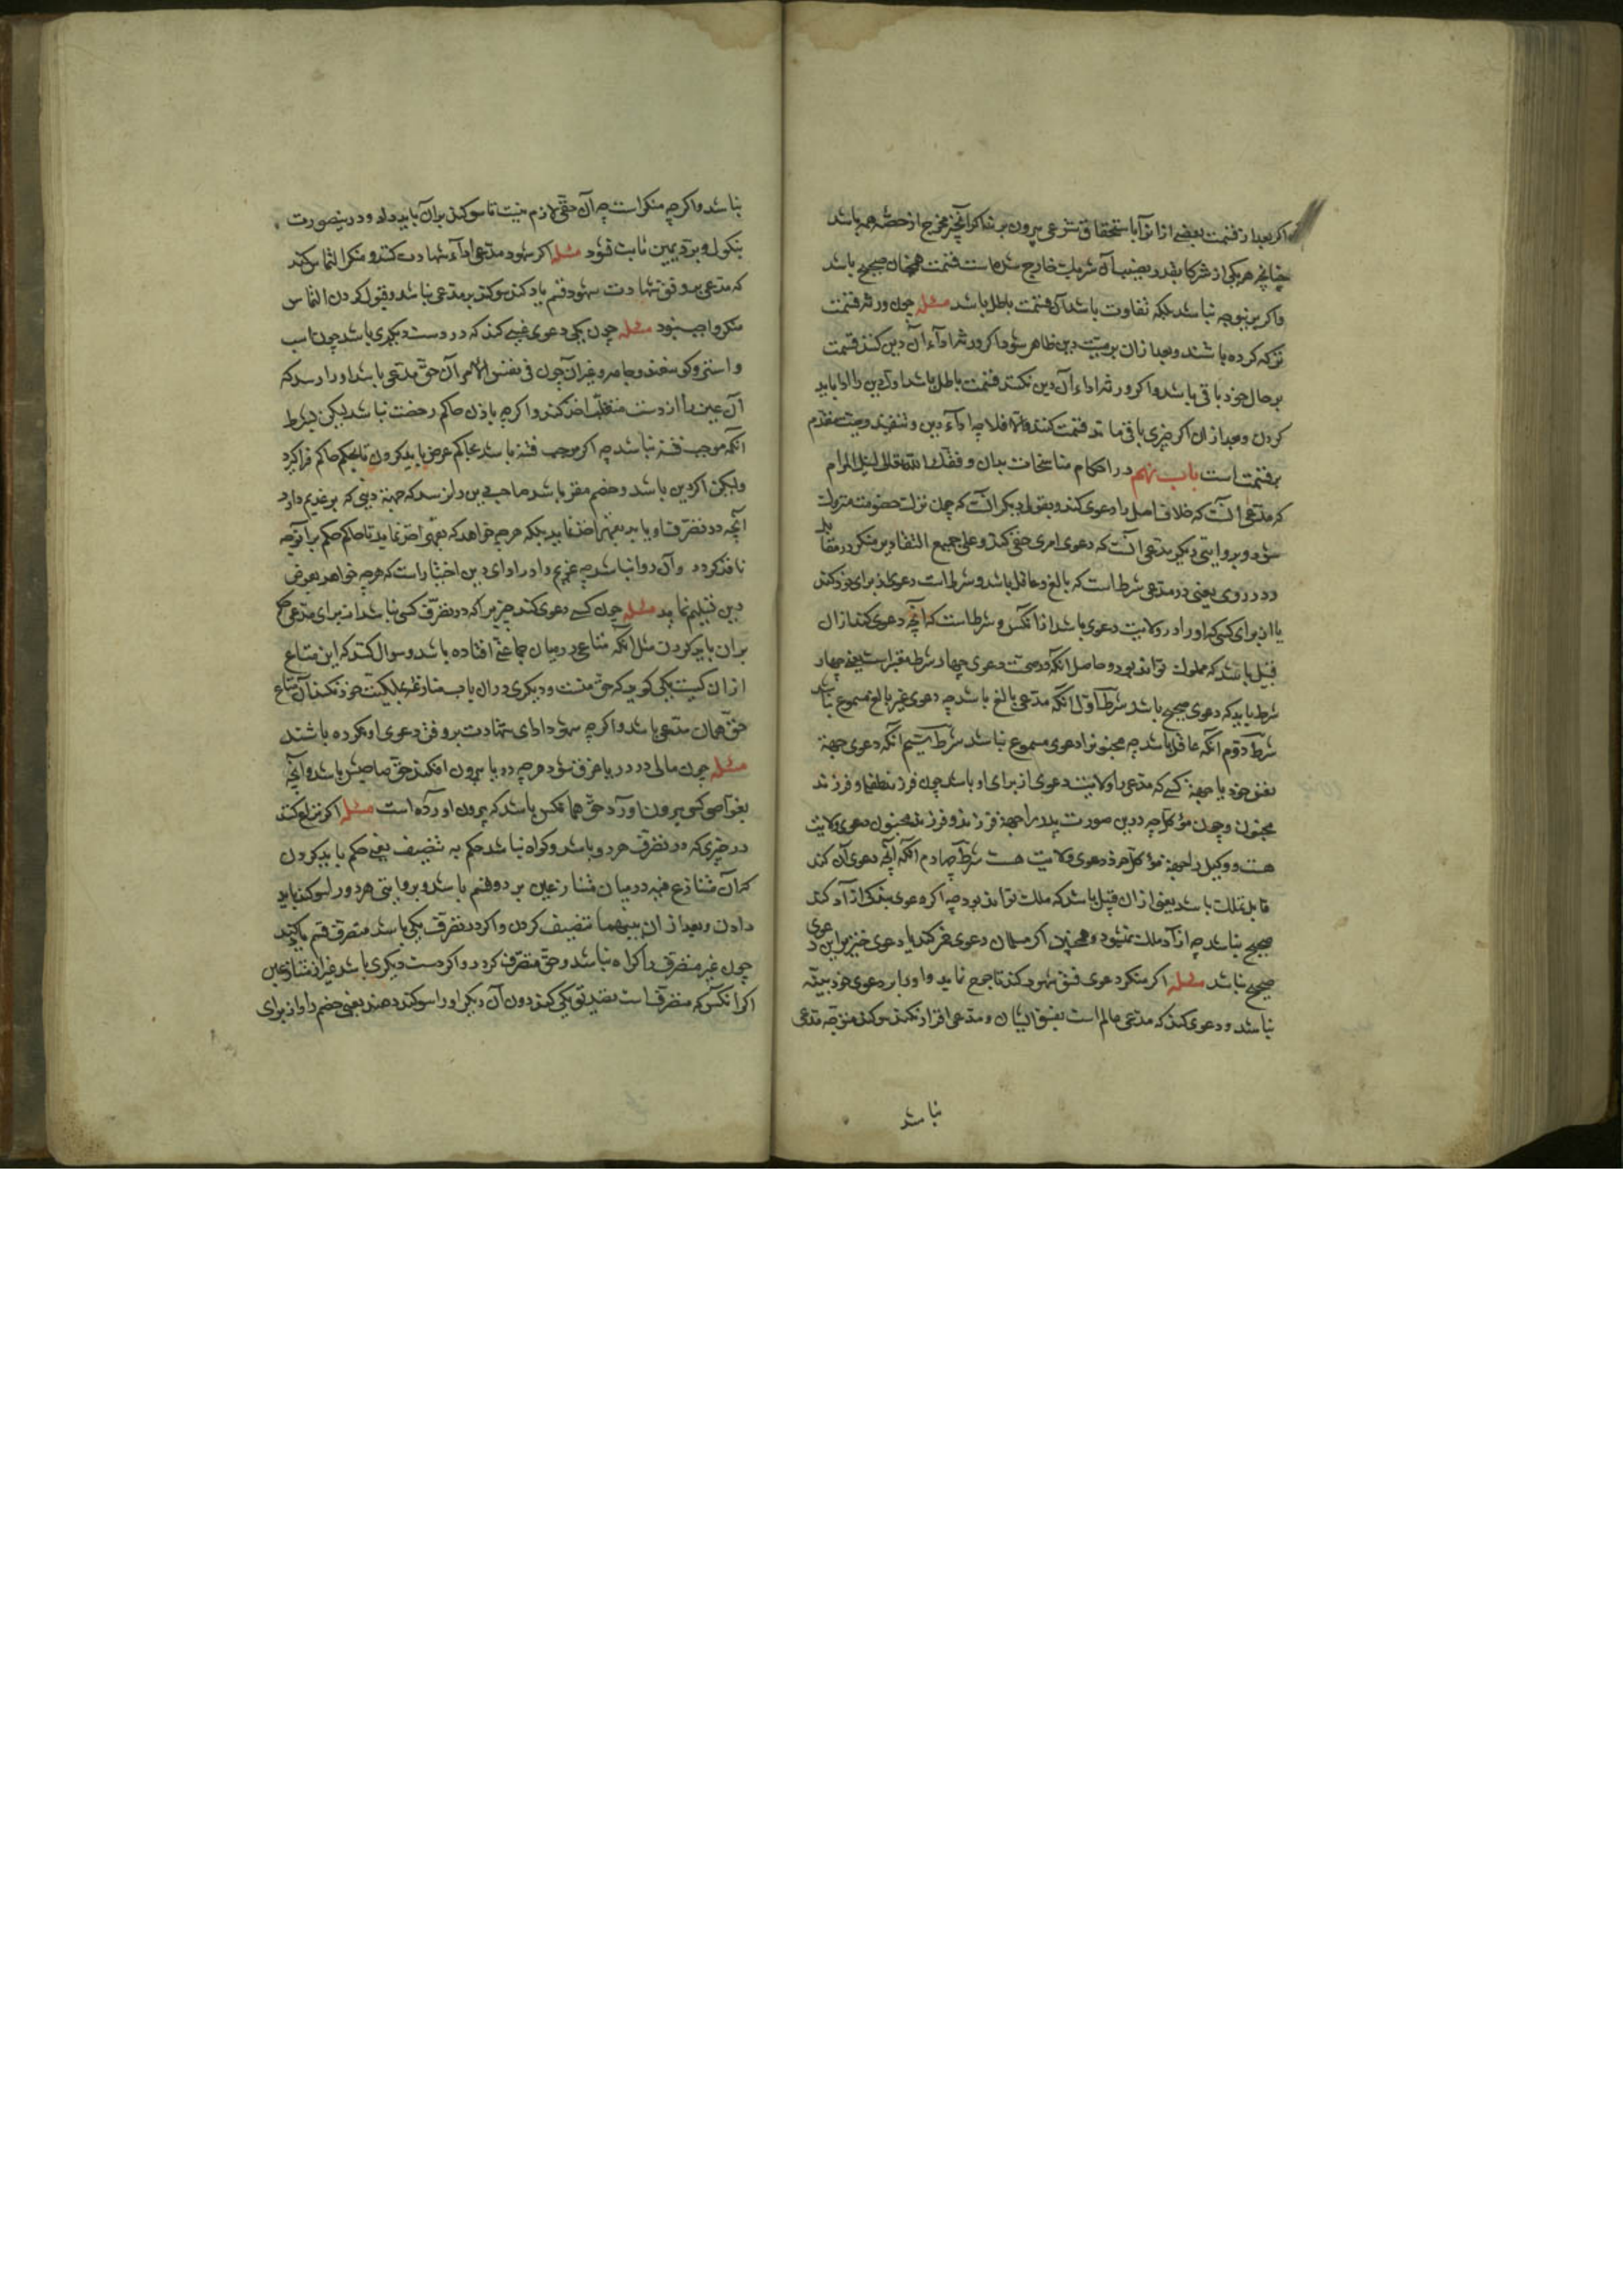 اکر بعد از قسمت بعضی از انرا باستحقاق شرعی بیرون برند اکر آنچیز مخرج از حصّه همه باشد
چنانچه هر یکی از شرکا بقدر نصیب آن شریک خارج شده است قسمت همچنان صحیح باشد
واکر برینوجه نباشد بلکه تفاوت باشد آن قسمت باطل باشد مسئله چون ورثه قسمت
ترکه کرده باشند وبعد ازان بر میّت دین ظاهر شود اکر ورثه اداء آن دین کنند قسمت
بر حال خود باقی باشد واکر ورثه اداء آن دین نکنند قسمت باطل باشد اول دین را ادا باید
کردن وبعد ازان اکر چیزی باقی ماند قسمت کنند والا فلا چه اداء دین و تنفیذ وصیت مقدم
بر قسمت است باب نهم در احکام مناسخات بیان وفقک الله تعالی لنیل المرام
که مدّعی آنست که خلاف اصل را دعوی کند وبقول دیکر آنست که چون ترک خصومت متروک
شود وبروایتی دیکر مدّعی آنست که دعوی امری خفی کند وعلی جمیع التقادیر منکر در مقابله
ودر روی یعنی در مدعی شرط است که بالغ وعاقل باشد وشرط است دعوی از برای خود کند
یا از برای کسی که او را در ولایت دعوی باشد از انکس وشرط است که آنچه دعوی کند ازان
قبیل باشد که مملوک تواند بود وحاصل آنکه در صحّت دعوی چهار شرط معتبر است یعنی چهار
شرط باید که دعوی صحیح باشد شرط اوّل آنکه مدعی بالغ باشد چه دعوی غیر بالغ مسموع نباشد
شرط دوّم آنکه عاقل باشد چه مجنونرا دعوی مسموع نباشد شرط سیّم آنکه دعوی جهة
نفس خود یا جهة کسی که مدعی را ولایت دعوی از برای او باشد چون فرزند طفل او فرزند
مجنون وچون مؤکل چه درین صورت پدر را جهة فرزند وفرزند مجنون دعوی ولایت
هست ووکیل را جهة مؤکل خود دعوی ولایت هست شرط چهارم آنکه آنچه دعوی آن کند
قابل تملّک باشد یعنی ازان قبیل باشد که ملک تواند بود چه اکر دعوی بندکی آزاد کند
صحیح نباشد چه آزاد ملک نمیشود وهمچنین اکر مسلمان دعوی خمر کند یا دعوی خنزیر این دعوی
صحیح نباشد مسئله اکر منکر دعوی فسق شهود کند تا جرح نماید واو را بر دعوی خود بیّنه
نباشد ودعوی کند که مدعی عالم است بفسق ایشان ومدعی اقرار نکند سوکند متوجّه مدعی
نباشد
نباشد واکرچه منکر است چه آن حقّی لازم نیست تا سوکند بران باید داد ودرینصورت
بنکول وبردّ یمین ثابت شود مسئله اکر شهود مدعی اداء شهادت کنند ومنکر التماس کند
که مدّعی بر وفق شهادت شهود قسم یاد کند سوکند بر مدعی نباشد وقبول کردن التماس
منکر واجب نبود مسئله چون یکی دعوی عینی کند که در دست دیکری باشد چون اسب
واستر وکوسفند وجامه وغیر آن چون فی نفس الامر آن حقّ مدّعی باشد او را رسد که
آن عین را از دست متغلّب اخذ کند واکرچه باذن حاکم رخصت نباشد لیکن بشرط
آنکه موجب فتنه نباشد چه اکر موجب فتنه باشد بحاکم عرض باید کردن تا بحکم حاکم فراکیرد
ولیکن اکر دین باشد وخصم مقرّ باشد صاحب دین را نرسد که جهة دینی که بر غریم دارد
آنچه در تصرّف او یابد بعینه اخذ نماید بلکه هرچه خواهد که بقهر اخذ نماید تا حاکم حکم بر آنوجه
نافذ کردد وآن روا نباشد چه غریم را در ادای دین اختیار است که هرچه خواهد بعوض
دین تسلیم نماید مسئله چون کسی دعوی کند چیزیرا که در تصرّف کسی نباشد از برای مدعی حکم
بران باید کردن مثل آنکه متاعی در میان جماعتی افتاده باشد وسوال کنند که این متاع
ازان کیست یکی کوید که حقّ منست ودیکری دران باب منازعه بملکیّت خود نکند آن متاع
حقّ همان مدّعی باشد واکرچه شهود ادای شهادت بر وفق دعوی او نکرده باشند
مسئله چون مالی در دریا غرق شود هرچه دریا بیرون افکند حقّ صاحبش باشد وآنچه
بغوّاصی کسی بیرون آورد حقّ همانکس باشد که بیرون آورده است مسئله اکر نزاع کنند
در چیزی که در تصرّف هر دو باشد وکواه نباشد حکم به تنصیف یعنی حکم باید کردن
که آن متنازع فیه در میان متنازعین بر دو قسم باشد وبروایتی هر دو را سوکند باید
دادن وبعد ازان بینهما تنصیف کردن واکر در تصرّف یکی باشد متصرّف قسم یاد کند
چون غیر متصرّف را کواه نباشد وحقّ متصرّف کردد واکر در دست دیکری باشد غیر از متنازعین
اکر آنکس که متصرّف است تصدیق یکی کند دون آن دیکر او را سوکند دهند یعنی خصم را واز برای